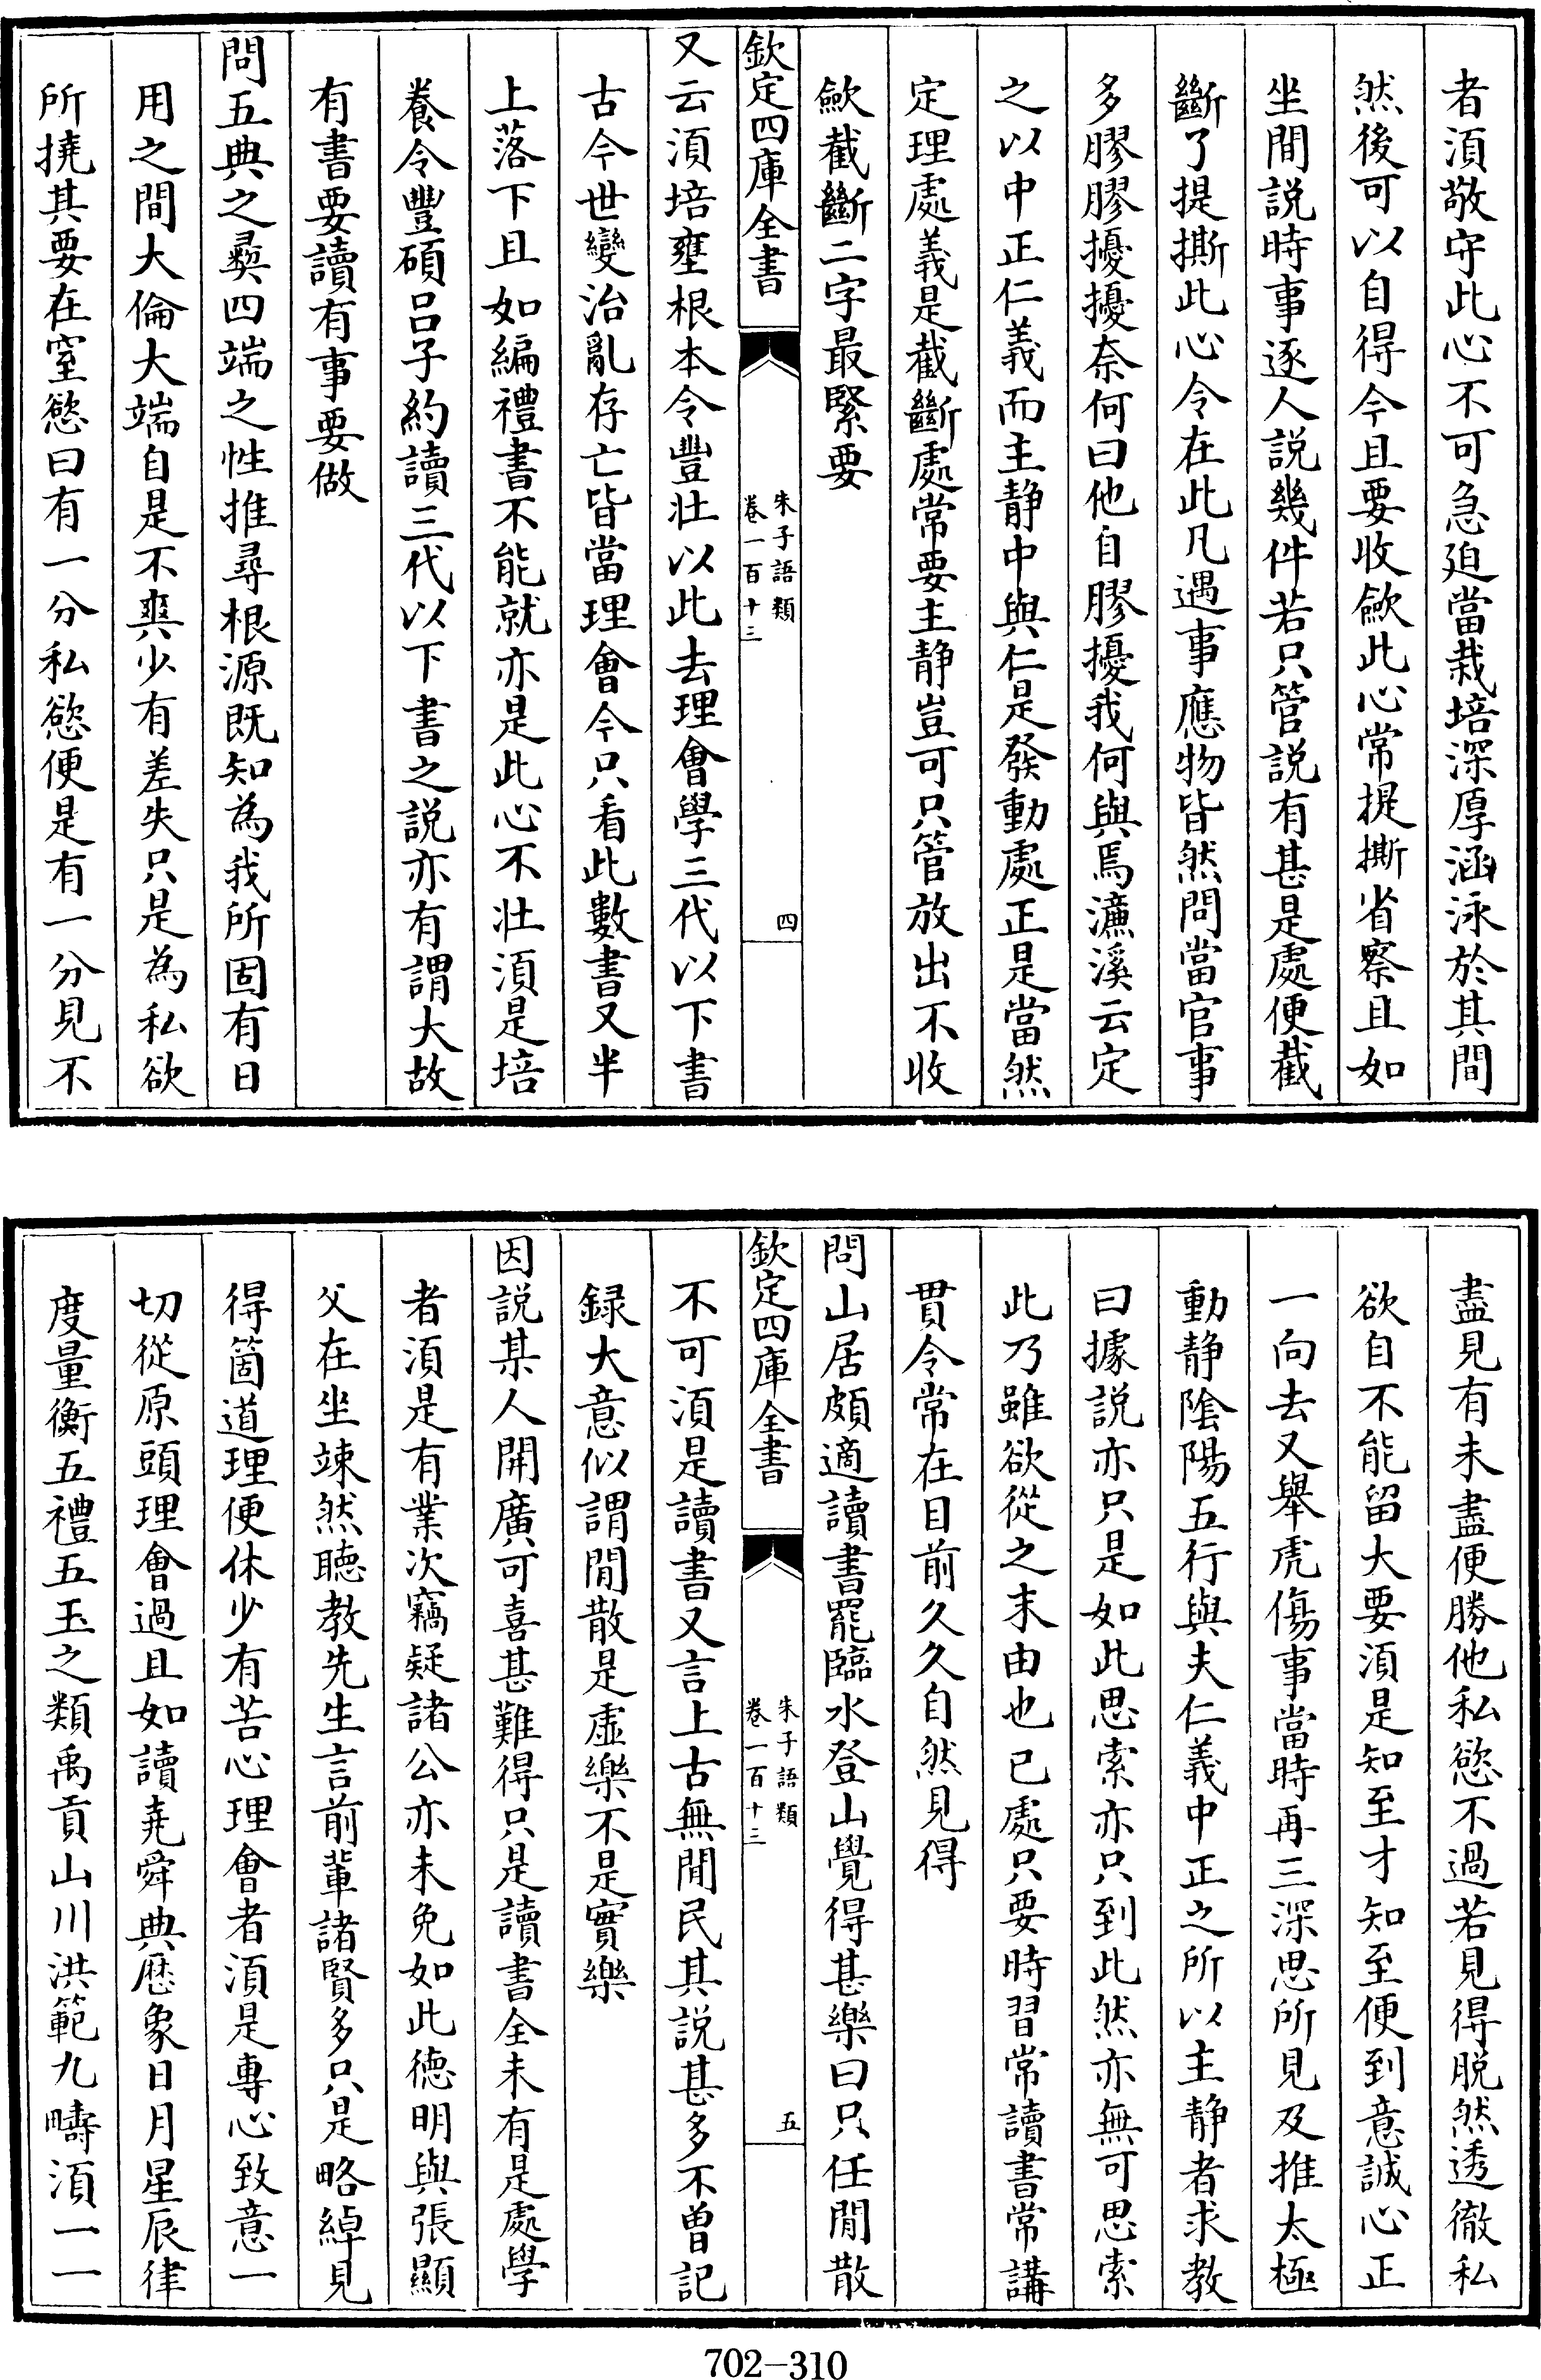 者須敬守此心不可急迫當栽培深厚涵泳於其間
然後可以自得今且要收歛此心常提撕省察且如
坐間說時事逐人說幾件若只管說有甚是處便截
斷了提撕此心令在此凡遇事應物皆然問當官事
多膠膠擾擾奈何曰他自膠擾我何與焉濂溪云定
之以中正仁義而主静中與仁是發動處正是當然
定理處義是截斷處常要主静豈可只管放出不收
歛截斷二字最緊要
欽定四庫全書
朱子語類
卷一百十三
四
又云須培壅根本令豐壯以此去理會學三代以下書
古今世變治亂存亡皆當理會今只看此數書又半
上落下且如編禮書不能就亦是此心不壯須是培
養令豐碩呂子約讀三代以下書之說亦有謂大故
有書要讀有事要做
問五典之彛四端之性推尋根源既知為我所固有日
用之間大倫大端自是不爽少有差失只是為私欲
所撓其要在窒慾曰有一分私慾便是有一分見不
盡見有未盡便勝他私慾不過若見得脱然透徹私
欲自不能留大要須是知至才知至便到意誠心正
一向去又舉虎傷事當時再三深思所見及推太極
動静隂陽五行與夫仁義中正之所以主静者求教
曰據説亦只是如此思索亦只到此然亦無可思索
此乃雖欲從之末由也已處只要時習常讀書常講
貫令常在目前久久自然見得
問山居頗適讀書罷臨水登山覺得甚樂曰只任閒散
欽定四庫全書
朱子語類
卷一百十三
五
不可須是讀書又言上古無閒民其説甚多不曾記
録大意似謂閒散是虛樂不是實樂
因説某人開廣可喜甚難得只是讀書全未有是處學
者須是有業次竊疑諸公亦未免如此德明與張顯
父在坐竦然聽教先生言前輩諸賢多只是略綽見
得箇道理便休少有苦心理會者須是專心致意一
切從原頭理會過且如讀堯舜典厯象日月星辰律
度量衡五禮五玉之類禹貢山川洪範九疇須一一
702-310